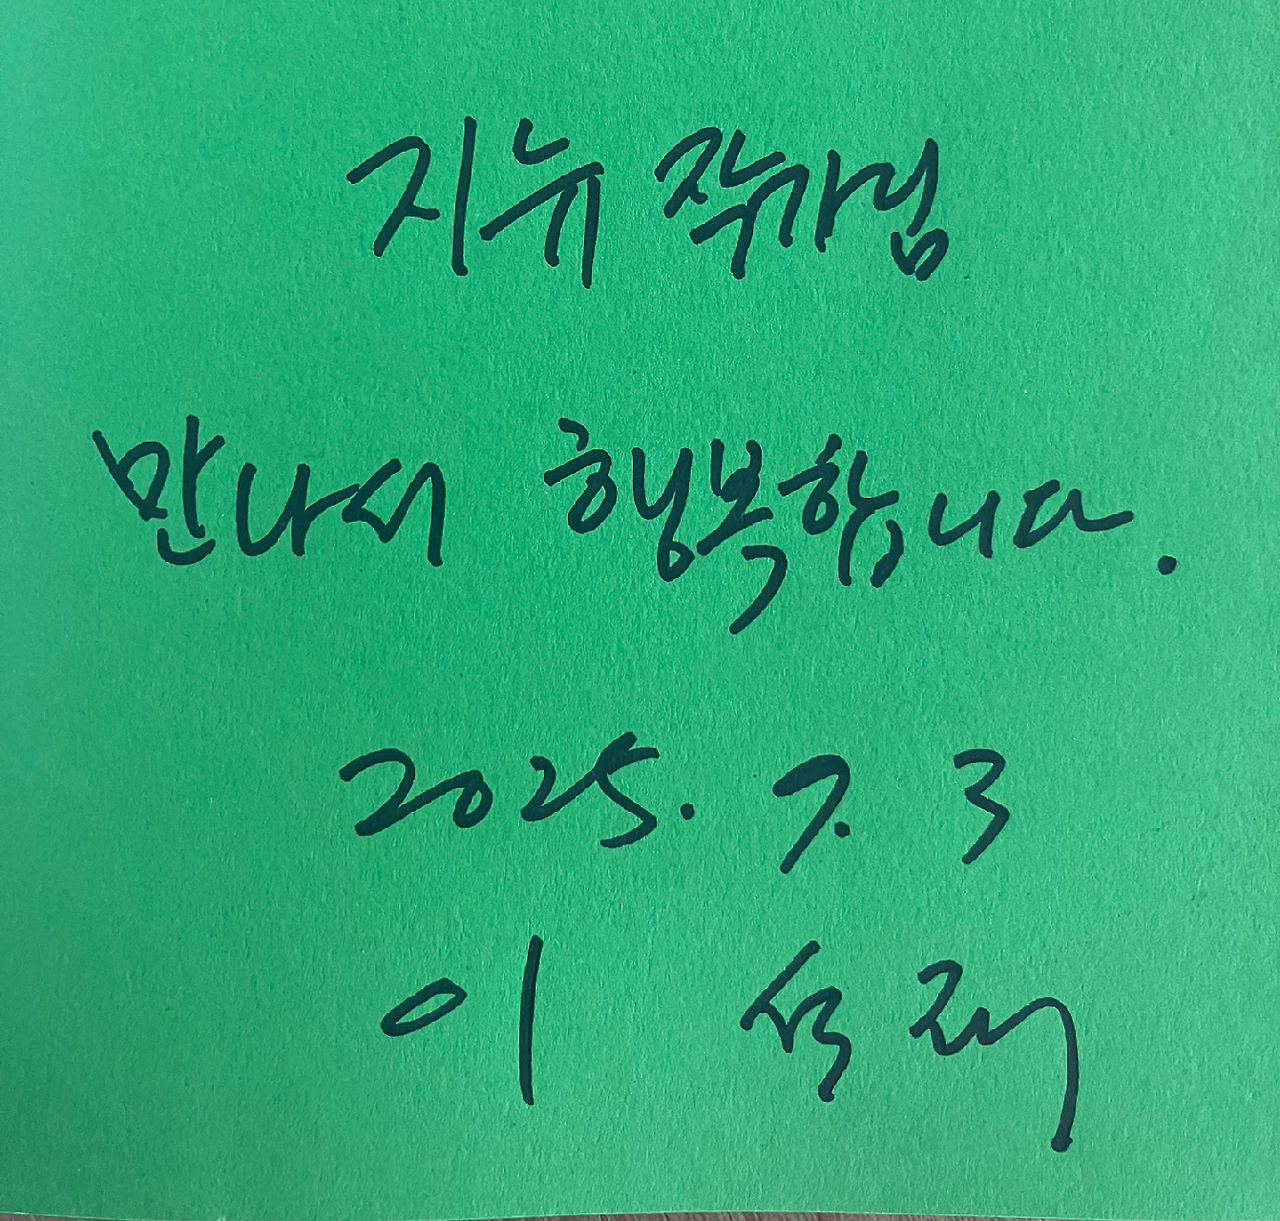 지뉴 작가님
만나서 행복합니다.
2025. 7. 3
이 석재